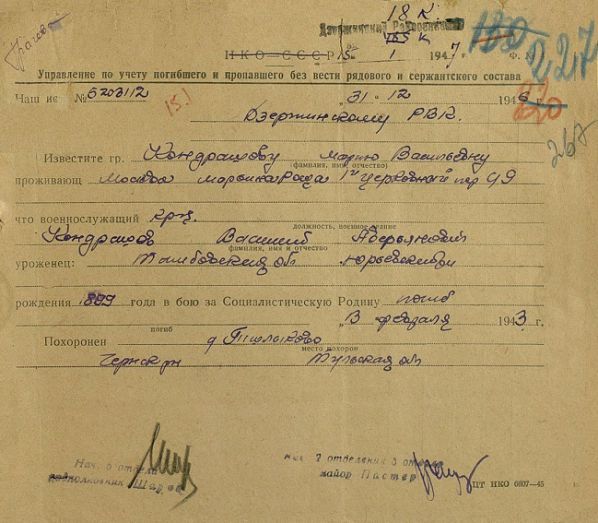 18 К
Дзержинский Райвоенкомат
165 К
180 227
НКО—СССР 15 1 1947 г. Ф. №
Управление по учету погибшего и пропавшего без вести рядового и сержантского состава
Наш исх №5203112 "31" 12 1946 г.
15.1
Дзержинскому РВК.
267
Известите гр. Кондрашову Марию Васильевну
фамилия, имя и отчество)
проживающ Москва Марьина роща 1й Церковный пер
что военнослужащий кр-ц.
должность, военное звание
Кондрашов Василий Аверьянович
фамилия, имя и отчество
уроженец: Тамбовская обл
рождения 1899 года в бою за Социалистическую Родину погиб
"3 февраля 1943 г.
погиб
Похоронен д
место похорон
Чернск р-н Тульская обл
Нач. 6 отдела
подполковник Шаров
нач 2 отделения 6 отдела
майор Пастер
ЦТ НКО 0807—45